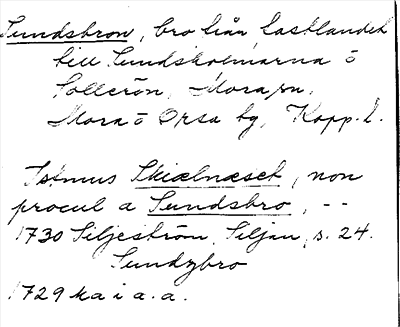 Sundsbron, bro från fastlandet
till Sundsholmarna ö
Sollerön, Mora sn,
Mora o Orsa tg, Kopp. l.
Istmus Skiælnæset, non
procul a Sundsbro, --
1730 Siljeström, Siljan, s. 24.
Sundzbro
1729 ka i a.a.